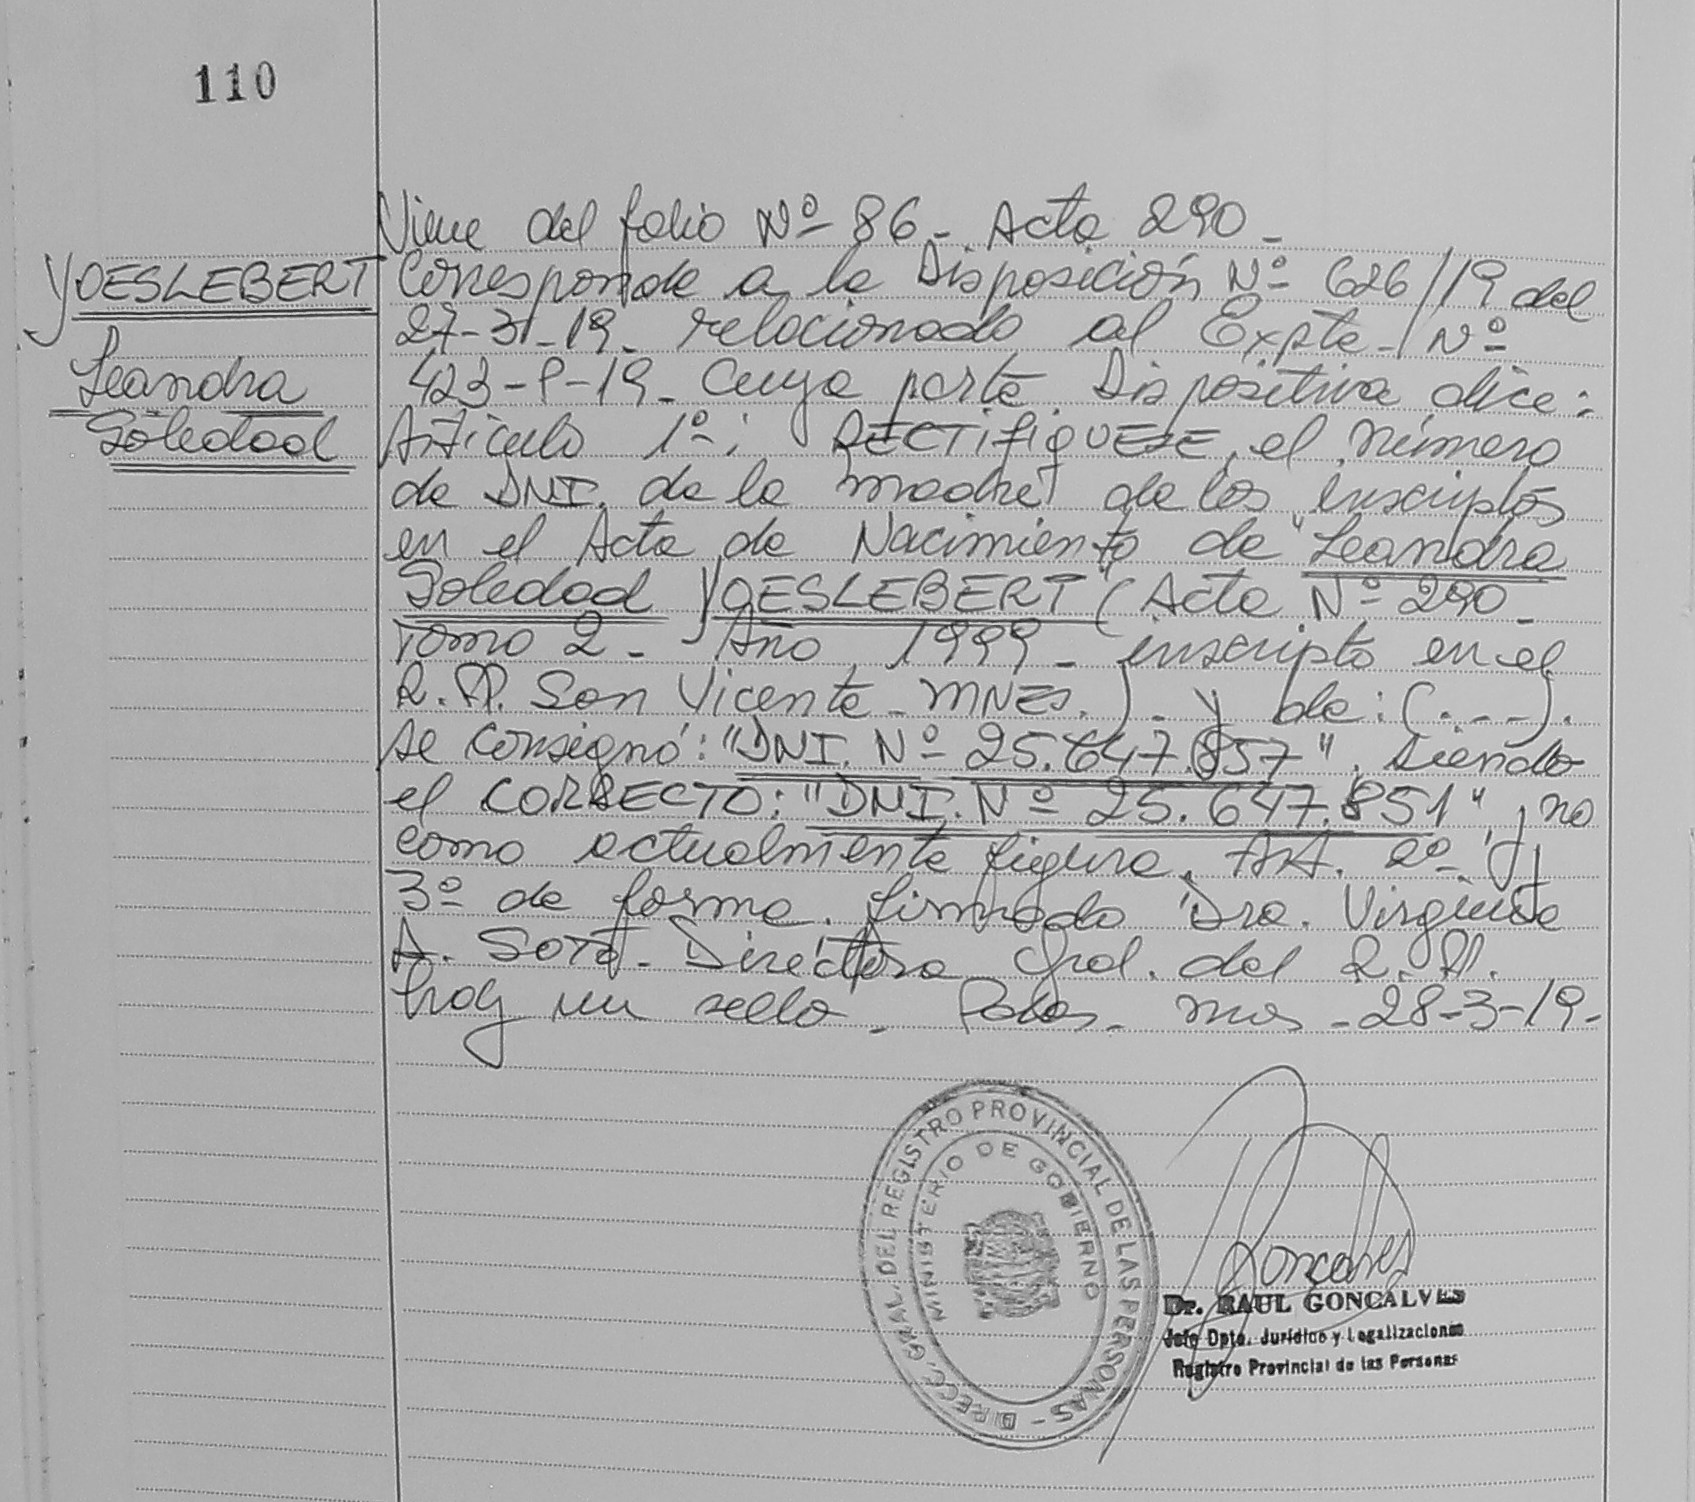 110
YOESLEBERT
Leandra
Soledad
Viene del folio Nº 86 - Acta 290 -
Corresponde a la Disposición Nº 626/19 del
27-3-19 - relacionado al Expte - Nº
423-P-19 - Cuya parte Dispositiva dice:
Artículo 1º: RECTIFIQUESE, el número
de DNI. de la madre de los inscriptos
en el Acta de Nacimiento de "Leandra
Soledad YOESLEBERT" (Acta Nº 290 -
Tomo 2 - Año 1999 - inscripto en el
R.P. San Vicente - MNES.) - y de: (. - - -).
se consignó: "DNI. Nº 25.647.857", siendo
el CORRECTO: "DNI. Nº 25.647.851", y no
como actualmente figura. Art. 2º y
3º de forma. Firmado Dra. Virginia
A. SOTO - Directora Gral. del R.P.
hay un sello - Pdas - mns - 28-3-19 -
DIRECC. GRAL. DEL REGISTRO PROVINCIAL DE LAS PERSONAS -
MINISTERIO DE GOBIERNO
Goncalves
Dr. RAUL GONCALVES
Jefe Dpto. Jurídico y Legalizaciones
Registro Provincial de las Personas